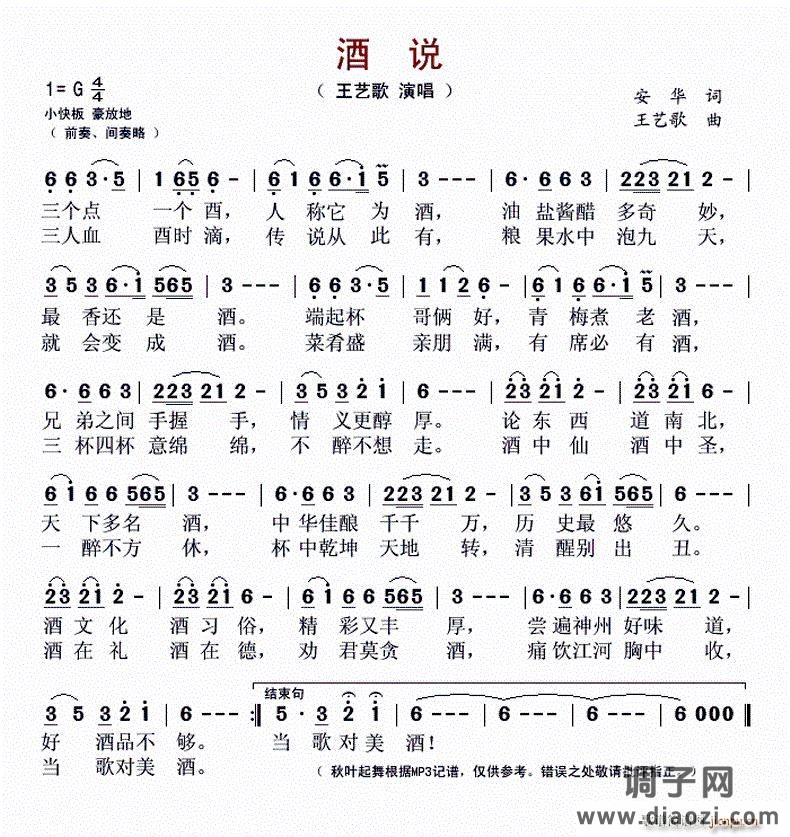 酒 说
1=G 4/4
（ 王艺歌 演唱 ）
安 华 词
小快板 豪放地
王艺歌 曲
（ 前奏、间奏略 ）
6 6 3·5 | 1 6 5 6 - | 6 1 6 6·1 5 | 3 - - - | 6· 6 6 3 | 2 2 3 2 1 2 - |
三个点 一个酉， 人 称它 为 酒， 油 盐酱醋 多奇 妙，
三人血 酉时滴， 传 说从 此 有， 粮 果水中 泡九 天，
3 5 3 6·1 5 6 5 | 3 - - - | 6 6 3·5 | 1 1 2 6 - | 6 1 6 6·1 5 | 3 - - - |
最 香还 是 酒。 端起杯 哥俩 好， 青 梅煮 老 酒，
就 会变 成 酒。 菜肴盛 亲朋 满， 有 席必 有 酒，
6· 6 6 3 | 2 2 3 2 1 2 - | 3 5 3 2 1 | 6 - - - | 2 3 2 1 2 - | 2 3 2 1 6 - |
兄 弟之间 手握 手， 情 义更醇 厚。 论 东 西 道 南 北，
三 杯四杯 意绵 绵， 不 醉不想 走。 酒 中 仙 酒 中 圣，
6 1 6 6 5 6 5 | 3 - - - | 6· 6 6 3 | 2 2 3 2 1 2 - | 3 5 3 6 1 5 6 5 | 6 - - - |
天 下多名 酒， 中 华佳酿 千千 万， 历 史最 悠 久。
一 醉不方 休， 杯 中乾坤 天地 转， 清 醒别 出 丑。
2 3 2 1 2 - | 2 3 2 1 6 - | 6 1 6 6 5 6 5 | 3 - - - | 6· 6 6 3 | 2 2 3 2 1 2 - |
酒 文 化 酒 习 俗， 精 彩又丰 厚， 尝 遍神州 好味 道，
酒 在 礼 酒 在 德， 劝 君莫贪 酒， 痛 饮江河 胸中 收，
结束句
3 5 3 2 1 | 6 - - - :|| 5· 3 2 1 | 6 - - - | 6 - - - | 6 0 0 0 ||
好 酒品不 够。 当 歌对美 酒！
当 歌对美 酒。
（ 秋叶起舞根据MP3记谱，仅供参考。错误之处敬请批评指正。）
调子网
www.diaozi.com